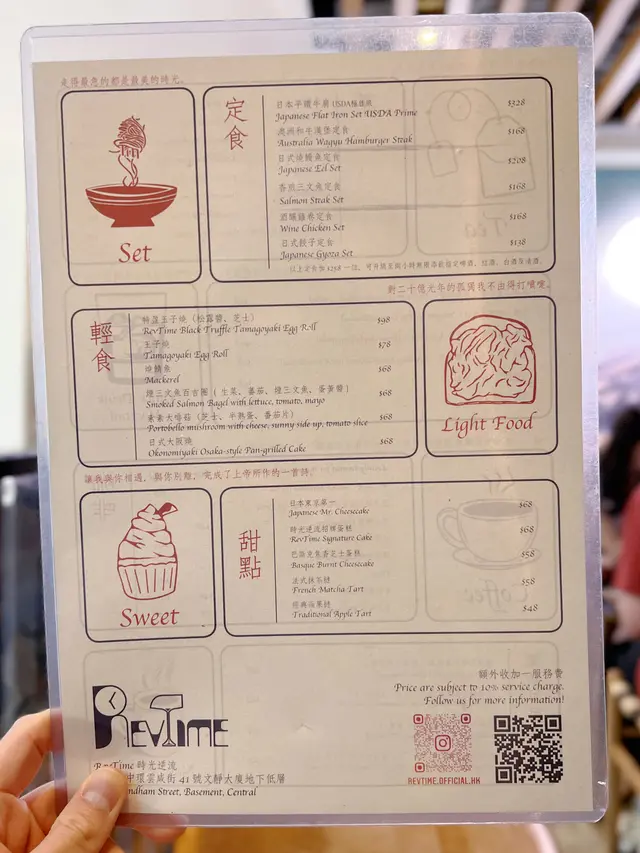 走得最急的都是最美的時光。
定食
日本平鐵牛扇 USDA極緻級
Japanese Flat Iron Set USDA Prime
$328
澳洲和牛漢堡定食
Australia Wagyu Hamburger Steak
$168
日式燒鰻魚定食
Japanese Eel Set
$208
香煎三文魚定食
Salmon Steak Set
$168
酒釀雞卷定食
Wine Chicken Set
$168
日式餃子定食
Japanese Gyoza Set
$138
Set
對二十億光年的孤獨我不由得打噴嚏。
輕食
特盛玉子燒（松露醬、芝士）
RevTime Black Truffle Tamagoyaki Egg Roll
$98
玉子燒
Tamagoyaki Egg Roll
$78
燒鯖魚
Mackerel
$68
煙三文魚百吉圈（生菜、蕃茄、煙三文魚、蛋黃醬）
Smoked Salmon Bagel with lettuce, tomato, mayo
$68
素素大啡菇（芝士、半熟蛋、蕃茄片）
Portobello mushroom with cheese, sunny side up, tomato slice
$68
日式大阪燒
Okonomiyaki Osaka-style Pan-grilled Cake
$68
Light Food
讓我與你相遇，與你別離，完成了上帝所作的一首詩。
Sweet
甜點
日本東京第一
Japanese Mr. Cheesecake
$68
時光逆流招牌蛋糕
RevTime Signature Cake
$68
巴斯克焦香芝士蛋糕
Basque Burnt Cheesecake
$58
法式抹茶撻
French Matcha Tart
$58
經典蘋果撻
Traditional Apple Tart
$48
額外收加一服務費
Price are subject to 10% service charge.
Follow us for more information!
REVTIME
REVTIME.OFFICIAL.HK
RevTime 時光逆流
中環雲咸街 41 號文靜大廈地下低層
ndham Street, Basement, Central